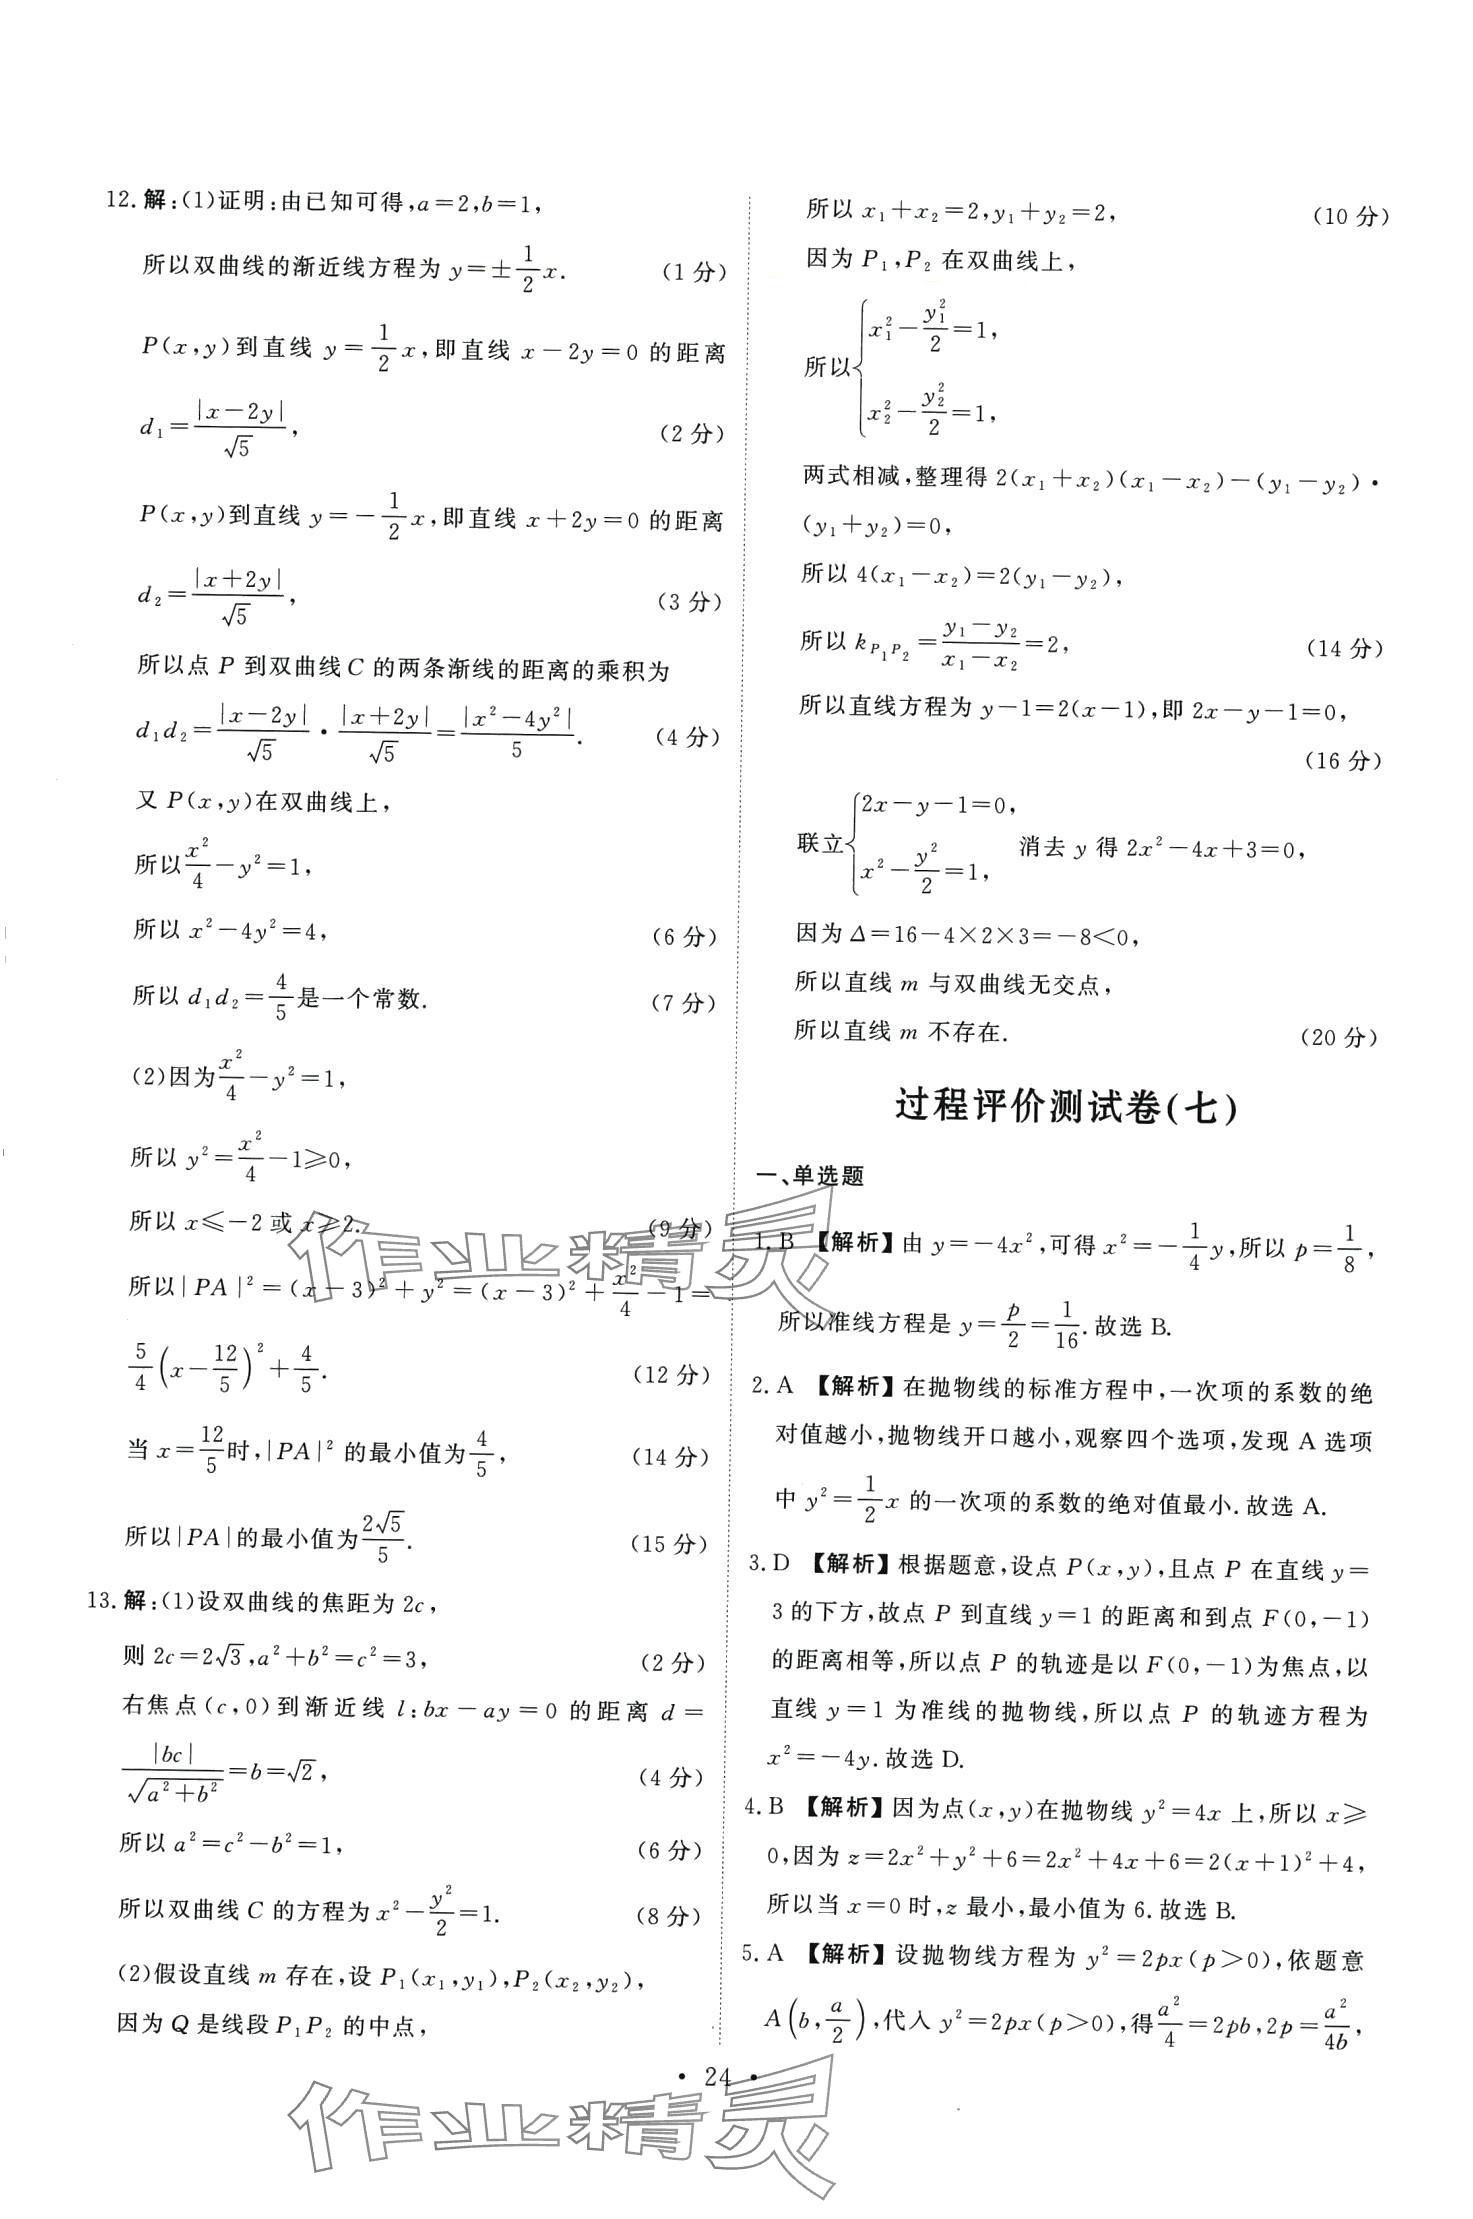 12.解:(1)证明:由已知可得,a=2,b=1,
所以双曲线的渐近线方程为 y=±1/2x. (1 分)
P(x,y)到直线 y=1/2x,即直线 x-2y=0 的距离
d₁=|x-2y|/√5, (2 分)
P(x,y)到直线 y=-1/2x,即直线 x+2y=0 的距离
d₂=|x+2y|/√5, (3 分)
所以点 P 到双曲线 C 的两条渐线的距离的乘积为
d₁d₂=|x-2y|/√5·|x+2y|/√5=|x²-4y²|/5. (4 分)
又 P(x,y)在双曲线上,
所以x²/4-y²=1,
所以 x²-4y²=4, (6 分)
所以 d₁d₂=4/5是一个常数. (7 分)
(2)因为x²/4-y²=1,
所以 y²=x²/4-1≥0,
所以 x≤-2 或 x≥2. (9 分)
所以|PA|²=(x-3)²+y²=(x-3)²+x²/4-1=
5/4(x-12/5)²+4/5. (12 分)
当 x=12/5时,|PA|² 的最小值为4/5, (14 分)
所以|PA|的最小值为2√5/5. (15 分)
13.解:(1)设双曲线的焦距为 2c,
则 2c=2√3,a²+b²=c²=3, (2 分)
右焦点(c,0)到渐近线 l:bx-ay=0 的距离 d=
|bc|/√(a²+b²)=b=√2, (4 分)
所以 a²=c²-b²=1, (6 分)
所以双曲线 C 的方程为 x²-y²/2=1. (8 分)
(2)假设直线 m 存在,设 P₁(x₁,y₁),P₂(x₂,y₂),
因为 Q 是线段 P₁P₂ 的中点,
所以 x₁+x₂=2,y₁+y₂=2, (10 分)
因为 P₁,P₂ 在双曲线上,
所以{x₁²-y₁²/2=1,
x₂²-y₂²/2=1,
两式相减,整理得 2(x₁+x₂)(x₁-x₂)-(y₁-y₂)·
(y₁+y₂)=0,
所以 4(x₁-x₂)=2(y₁-y₂),
所以 k_P₁P₂=(y₁-y₂)/(x₁-x₂)=2, (14 分)
所以直线方程为 y-1=2(x-1),即 2x-y-1=0,
(16 分)
联立{2x-y-1=0,
x²-y²/2=1, 消去 y 得 2x²-4x+3=0,
因为 Δ=16-4×2×3=-8<0,
所以直线 m 与双曲线无交点,
所以直线 m 不存在. (20 分)
过程评价测试卷(七)
一、单选题
1.B 【解析】由 y=-4x²,可得 x²=-1/4y,所以 p=1/8,
所以准线方程是 y=p/2=1/16.故选 B.
2.A 【解析】在抛物线的标准方程中,一次项的系数的绝
对值越小,抛物线开口越小,观察四个选项,发现 A 选项
中 y²=1/2x 的一次项的系数的绝对值最小.故选 A.
3.D 【解析】根据题意,设点 P(x,y),且点 P 在直线 y=
3 的下方,故点 P 到直线 y=1 的距离和到点 F(0,-1)
的距离相等,所以点 P 的轨迹是以 F(0,-1)为焦点,以
直线 y=1 为准线的抛物线,所以点 P 的轨迹方程为
x²=-4y.故选 D.
4.B 【解析】因为点(x,y)在抛物线 y²=4x 上,所以 x≥
0,因为 z=2x²+y²+6=2x²+4x+6=2(x+1)²+4,
所以当 x=0 时,z 最小,最小值为 6.故选 B.
5.A 【解析】设抛物线方程为 y²=2px(p>0),依题意
A(b,a/2),代入 y²=2px(p>0),得a²/4=2pb,2p=a²/4b,
• 24 •
作业精灵
作业精灵